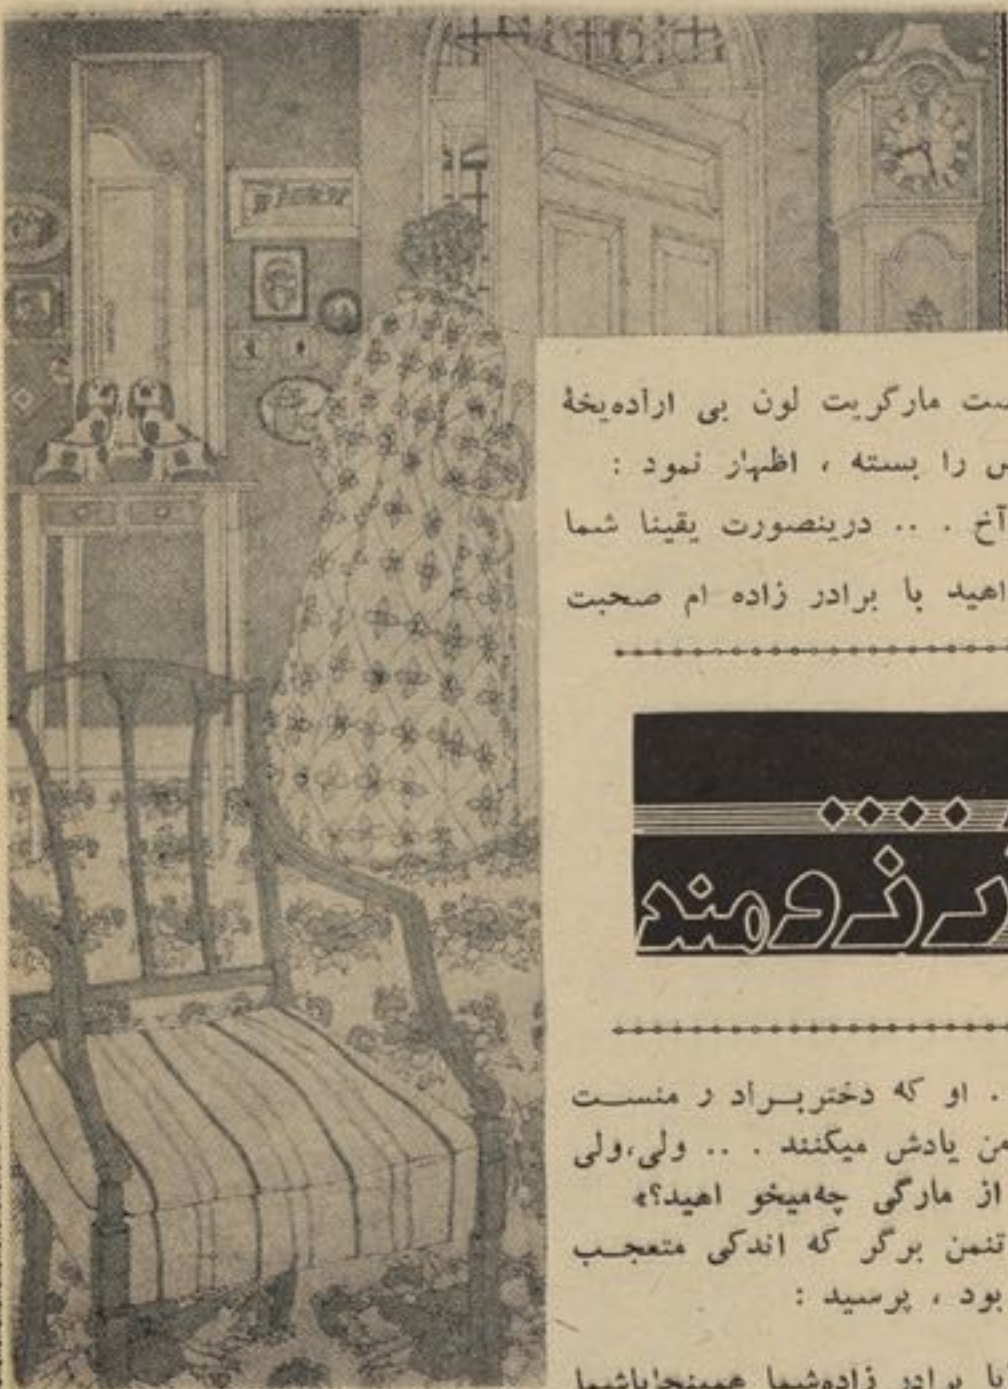 مارگریت لون بی اراده‌یخهٔ
را بسته ، اظهار نمود :
آخ . .. درینصورت یقینا شما
اهید با برادر زاده ام صحبت
رزومند
. او که دختربــراد ر منســت
من یادش میکنند . .. ولی،ولی
از مارگی چه‌میخو اهید؟»
تنمن برگر که اندکی متعجــب
بود ، پرسید :
با برادر زاده‌شما همینجاباشما